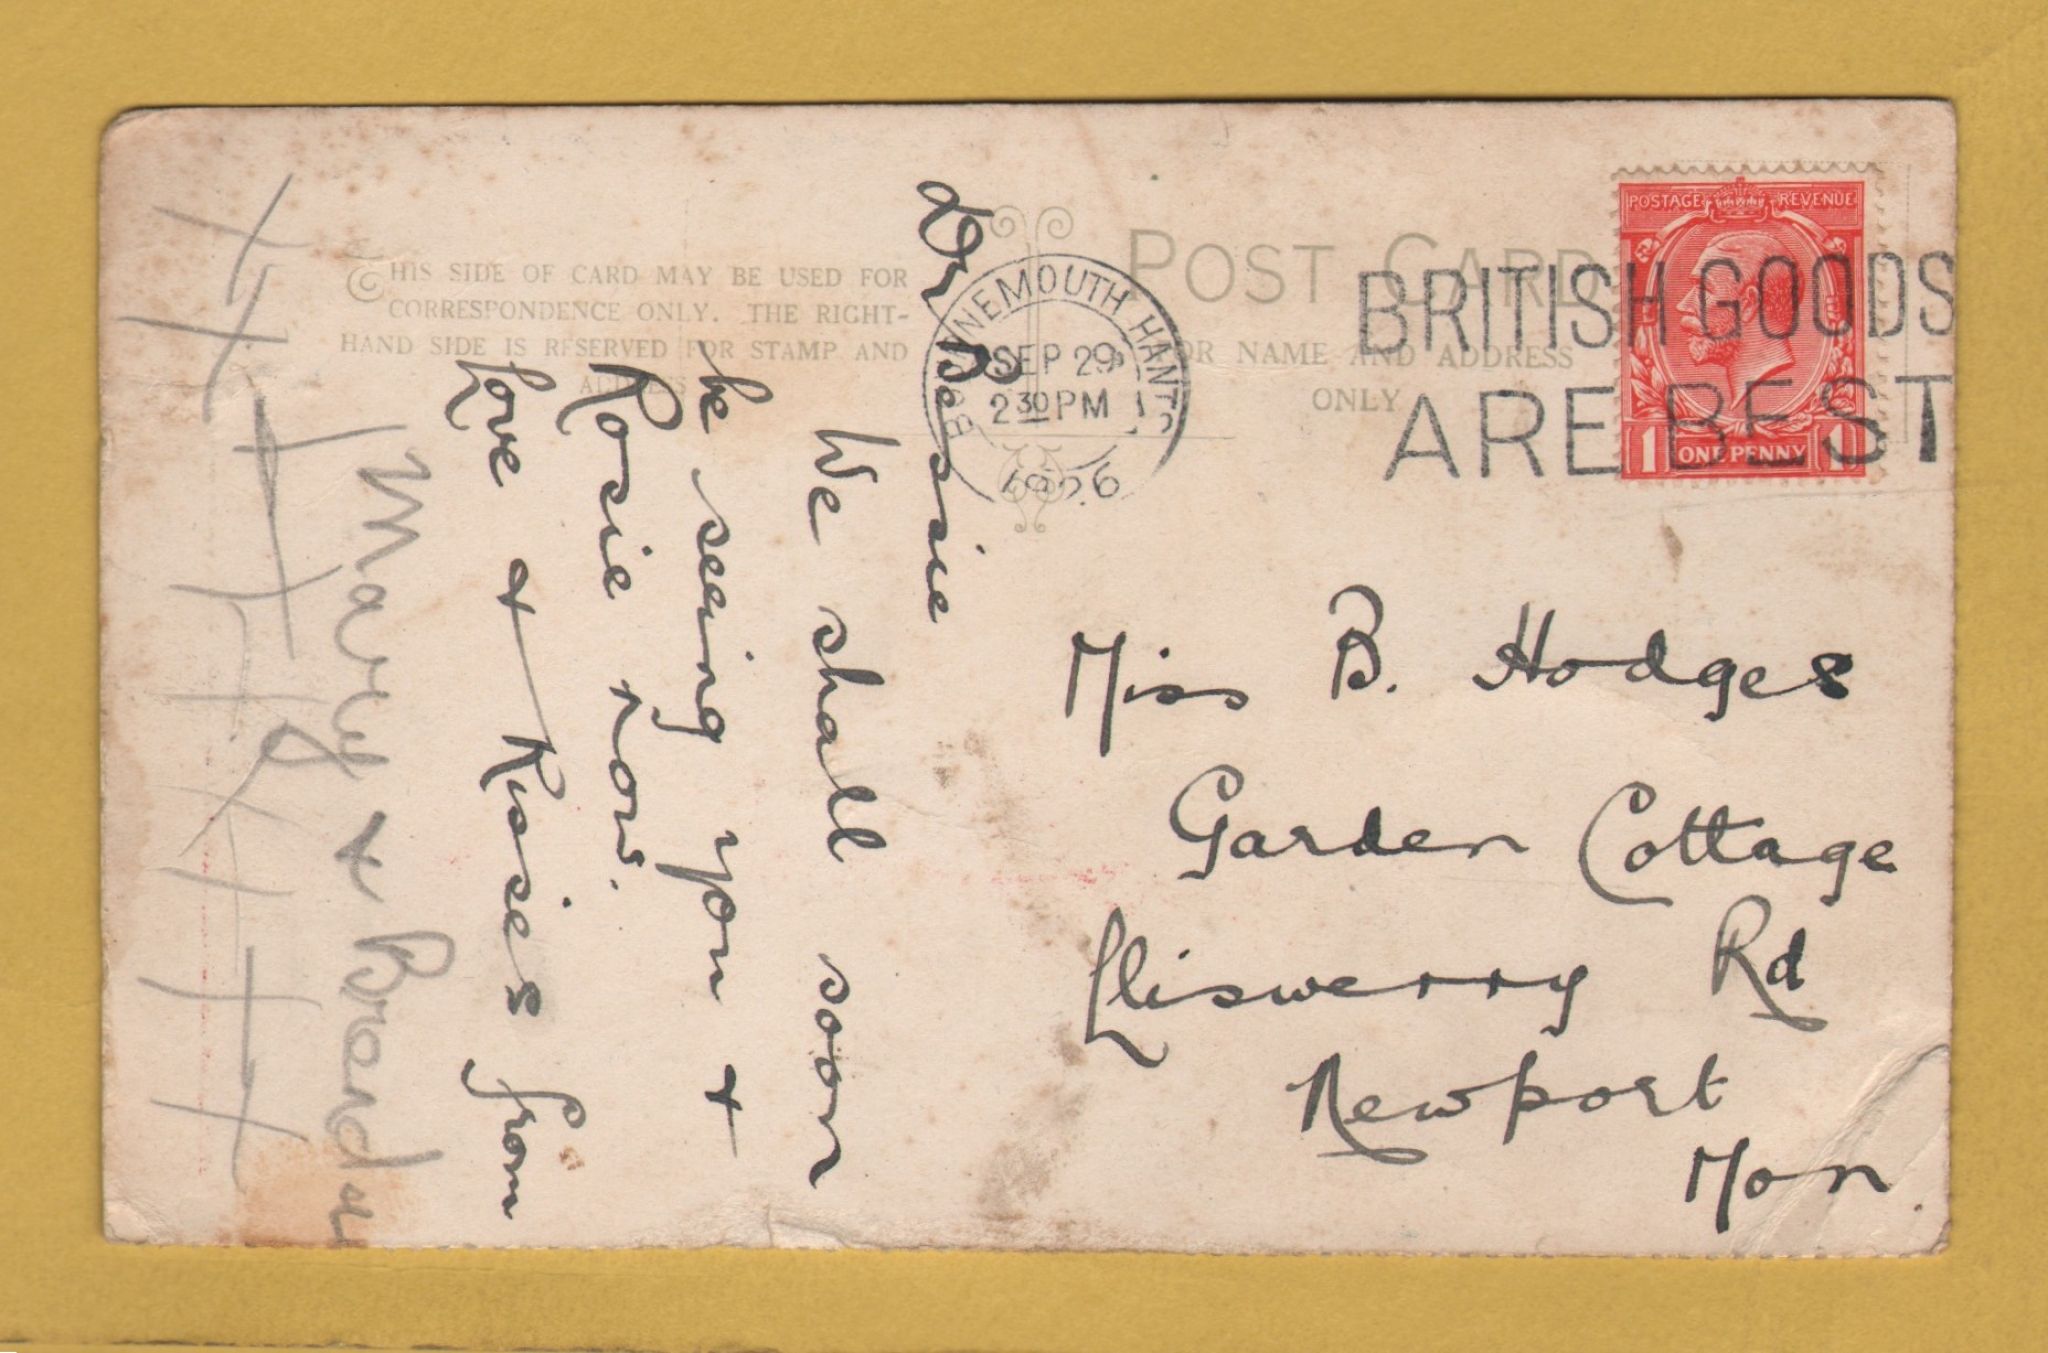 THIS SIDE OF CARD MAY BE USED FOR
CORRESPONDENCE ONLY. THE RIGHT-
HAND SIDE IS RESERVED FOR STAMP AND
ADDRESS
POST CARD
FOR NAME AND ADDRESS
ONLY
BOURNEMOUTH HANTS
SEP 29
2 30 PM
1926
BRITISH GOODS
ARE BEST
POSTAGE REVENUE
1 ONE PENNY 1
Dr Bessie
We shall soon
be seeing you +
Rosie now.
Love + Kisses from
Mary + Brenda
Miss B. Hodges
Garden Cottage
Lliswerry Rd
Newport
Mon.